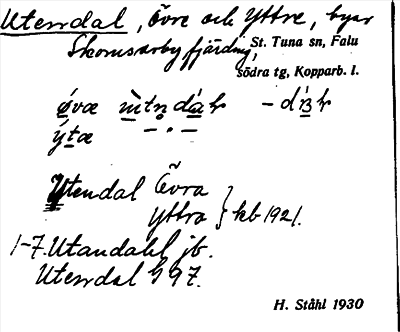 Utendal, Övre och Yttre, byar
Skomsarby fjärding, St. Tuna sn, Falu
södra tg, Kopparb. l.
ý̱tæ
Utendal Övra
Yttra } kb 1921.
1-7. Utandahl jb.
Utendal G 97.
H. Ståhl 1930